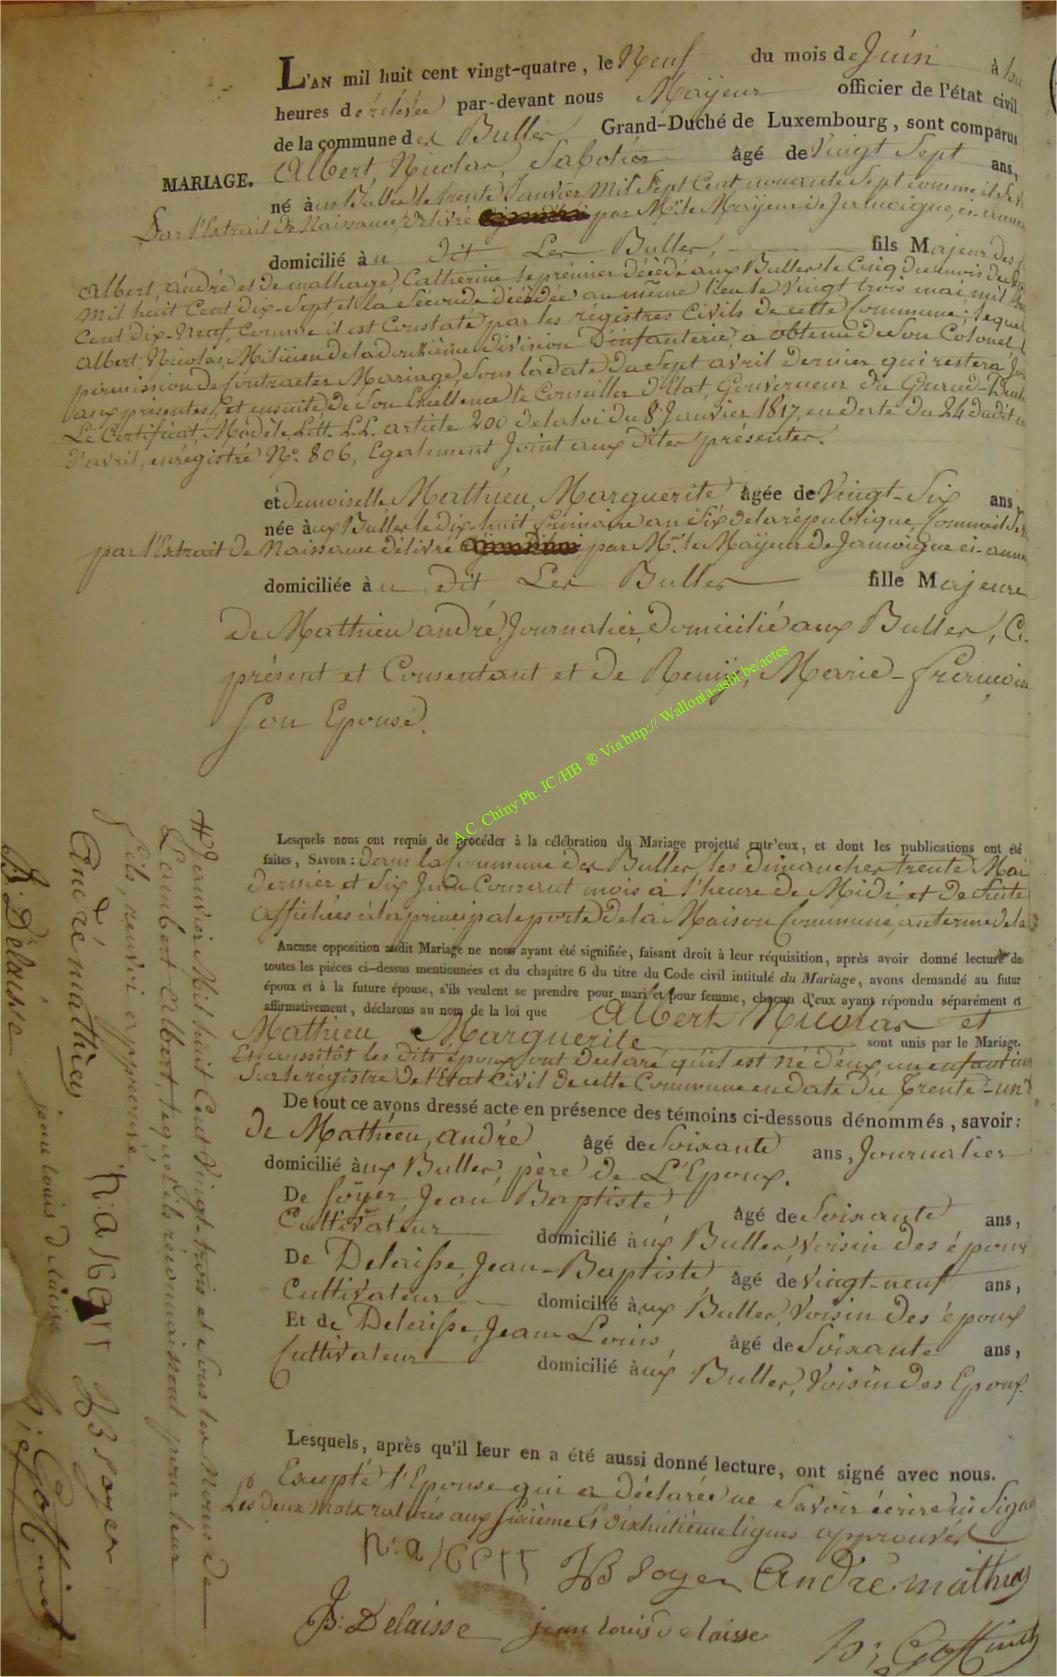 L'AN mil huit cent vingt-quatre, le Neuf du mois de Juin à
heures de rélévée par-devant nous Maÿeur officier de l'état civil
de la commune des Buller Grand-Duché de Luxembourg, sont comparus
Albert, Nicolas, Sabotier âgé de Vingt Sept ans,
MARIAGE.
né à ux Buller le trente Janvier Mil Sept Cent nouante Sept comme il
Par l'Extrait de Naissance, délivré par Mr. le Maÿeur de Jamoigne, ci-annexé
domicilié à u dit Les Buller, fils Majeur des
Albert, andré et de malhage, Catherine le prémier décédé aux Buller le Cinq du mois de
Mil huit Cent Dix-Sept, et la Seconde décédée au même lieu le Vingt trois mai mil
Cent Dix-Neuf, Comme il est Constaté par les régistres Civils de cette Commune; lequel
Albert, Nicolas, Milicien de la douzième Division D'infanterie, a obtenu de Son Colonel
pérmission de Contracter Mariage, Sous la date du Sept avril dernier qui restera
aux présentes, Et ensuite de Son Excellence le Conseiller d'Etat, Gouverneur du Grand-Duché
Le Certificat, Modèle Litt. L.L. article 200 de la loi du 8 Janvier 1817, en date du 24 dudit
d'avril, enrégistré No. 806, Egalement Joint aux dites présentes.
et Demoiselle Mathieu, Marguerite âgée de Vingt-Six ans,
née à ux Buller le dix-huit frimaire an Six de la république, Comme il
par l'Extrait de Naissance délivré par Mr. le Maÿeur de Jamoigne ci-annexé
domiciliée à u dit Les Buller fille Majeure
de Mathieu andré, Journalier, Domicilié aux Buller, Ci
présent et Consentant et de Remÿ, Marie-françoise
Son Epouse.
A.C. Chiny Ph. JC/HB ® Via http:// Wallonia-asbl.be/actes
Lesquels nous ont requis de procéder à la célébration du Mariage projetté entr'eux, et dont les publications ont été
faites, SAVOIR: Dans la Commune des Buller, les dimanches trente Mai
dernier et Six Juin Courant mois à l'heure de Midi et de Suite
affichées à la principale porte de la Maison Commune, au terme de la
Aucune opposition audit Mariage ne nous ayant été signifiée, faisant droit à leur réquisition, après avoir donné lecture de
toutes les pièces ci-dessus mentionnées et du chapitre 6 du titre du Code civil intitulé du Mariage, avons demandé au futur
époux et à la future épouse, s'ils veulent se prendre pour mari et pour femme, chacun d'eux ayant répondu séparément et
affirmativement, déclarons au nom de la loi que Albert Nicolas et
Mathieu Marguerite sont unis par le Mariage.
Et aussitôt les dits époux ont déclaré qu'il est né d'eux un enfant
Sur le régistre de l'Etat Civil de cette Commune en date du trente-un
De tout ce avons dressé acte en présence des témoins ci-dessous dénommés, savoir:
De Mathieu, andré âgé de Soixante ans, Journalier
domicilié à ux Buller, père de L'Epoux.
De Soÿer Jean Baptiste âgé de Soixante ans,
Cultivateur domicilié à ux Buller, Voisin des époux
De Delaisse, Jean-Baptiste âgé de Vingt-neuf ans,
Cultivateur domicilié à ux Buller, Voisin des époux
Et de Delaisse, Jean Louis, âgé de Soixante ans,
Cultivateur domicilié à ux Buller, Voisin des Epoux.
Lesquels, après qu'il leur en a été aussi donné lecture, ont signé avec nous.
Excepté l'Epouse qui a Déclarée ne Savoir écrire ni Signer
Les deux mots raturés aux Sixième et dixhuitième lignes approuvés
n: a lbert JB soyer André mathieu
JB: Delaisse jean louis delaisse
h: Goffinet
Janvier Mil huit Cent Vingt-trois et Sous les Noms de
Lambert Albert, lequel ils réconnaissent pour leur
fils, renvoi approuvé.
André mathieu n: a lbert JB soyer
B: Delaisse jean louis delaisse h: Goffinet